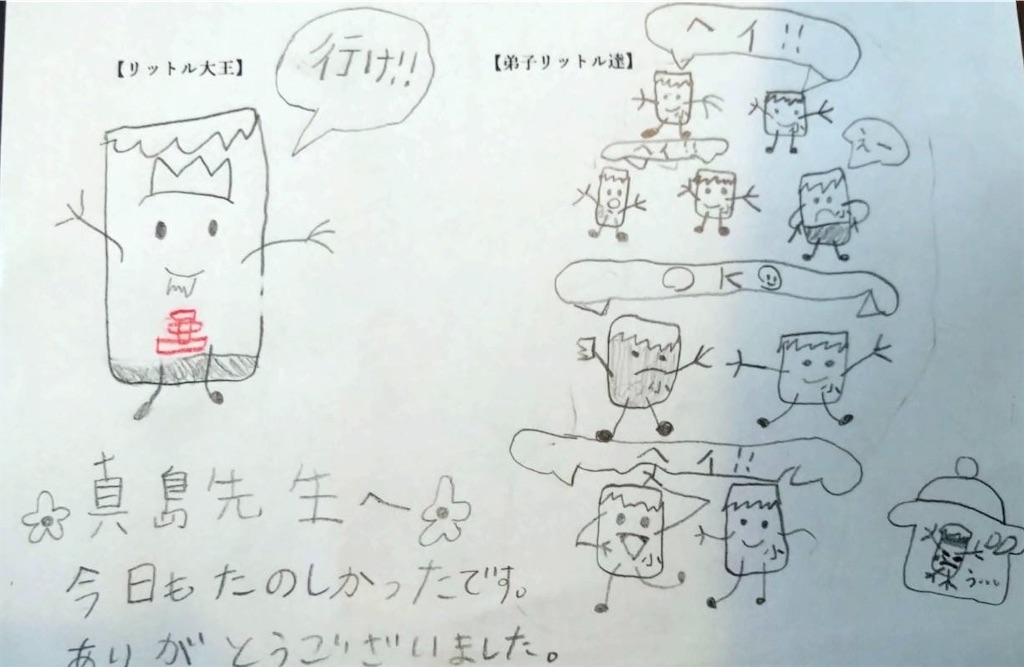 【リットル大王】
行け!!
【弟子リットル達】
ヘイ!!
ヘイ!!
えー
OK
小
小
ヘイ!!
小
小
う…
真島先生へ
今日もたのしかったです。
ありがとうございました。